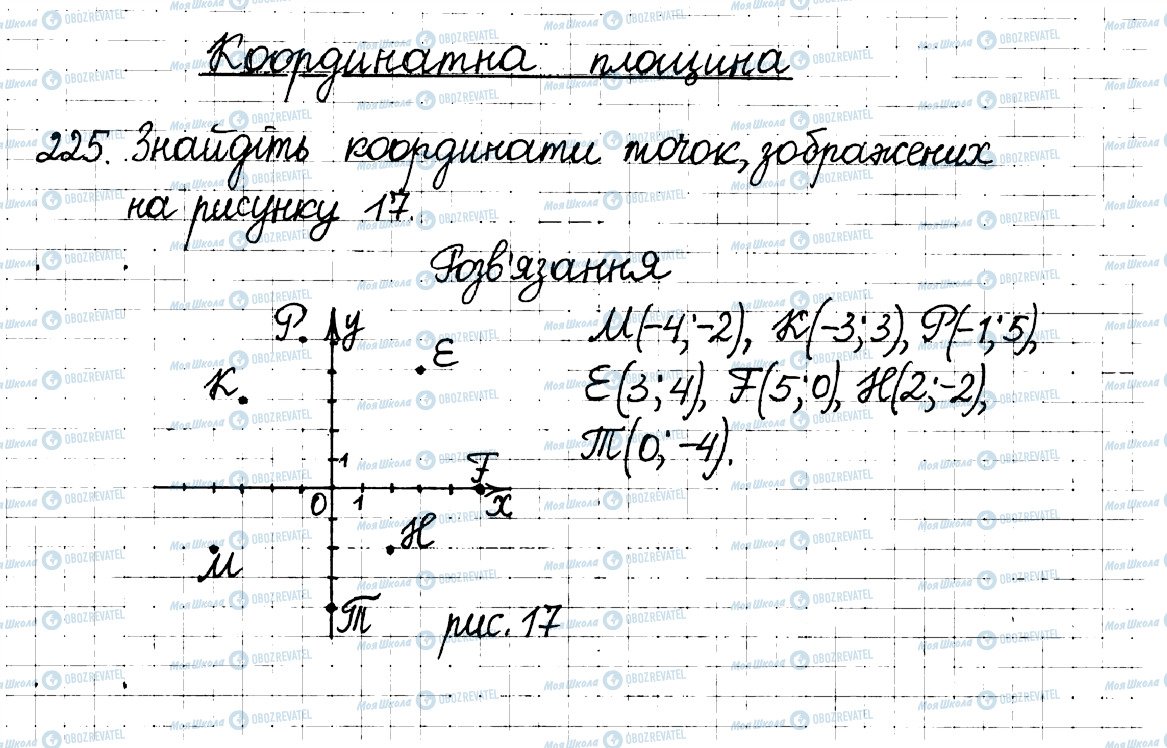 Координатна площина
225. Знайдіть координати точок, зображених
на рисунку 17.
Розв'язання
M(-4;-2), K(-3;3), P(-1;5),
E(3;4), F(5;0), H(2;-2),
T(0;-4).
P y
E
K
1
F
0 1 x
H
M
T рис. 17
МояШкола OBOZREVATEL